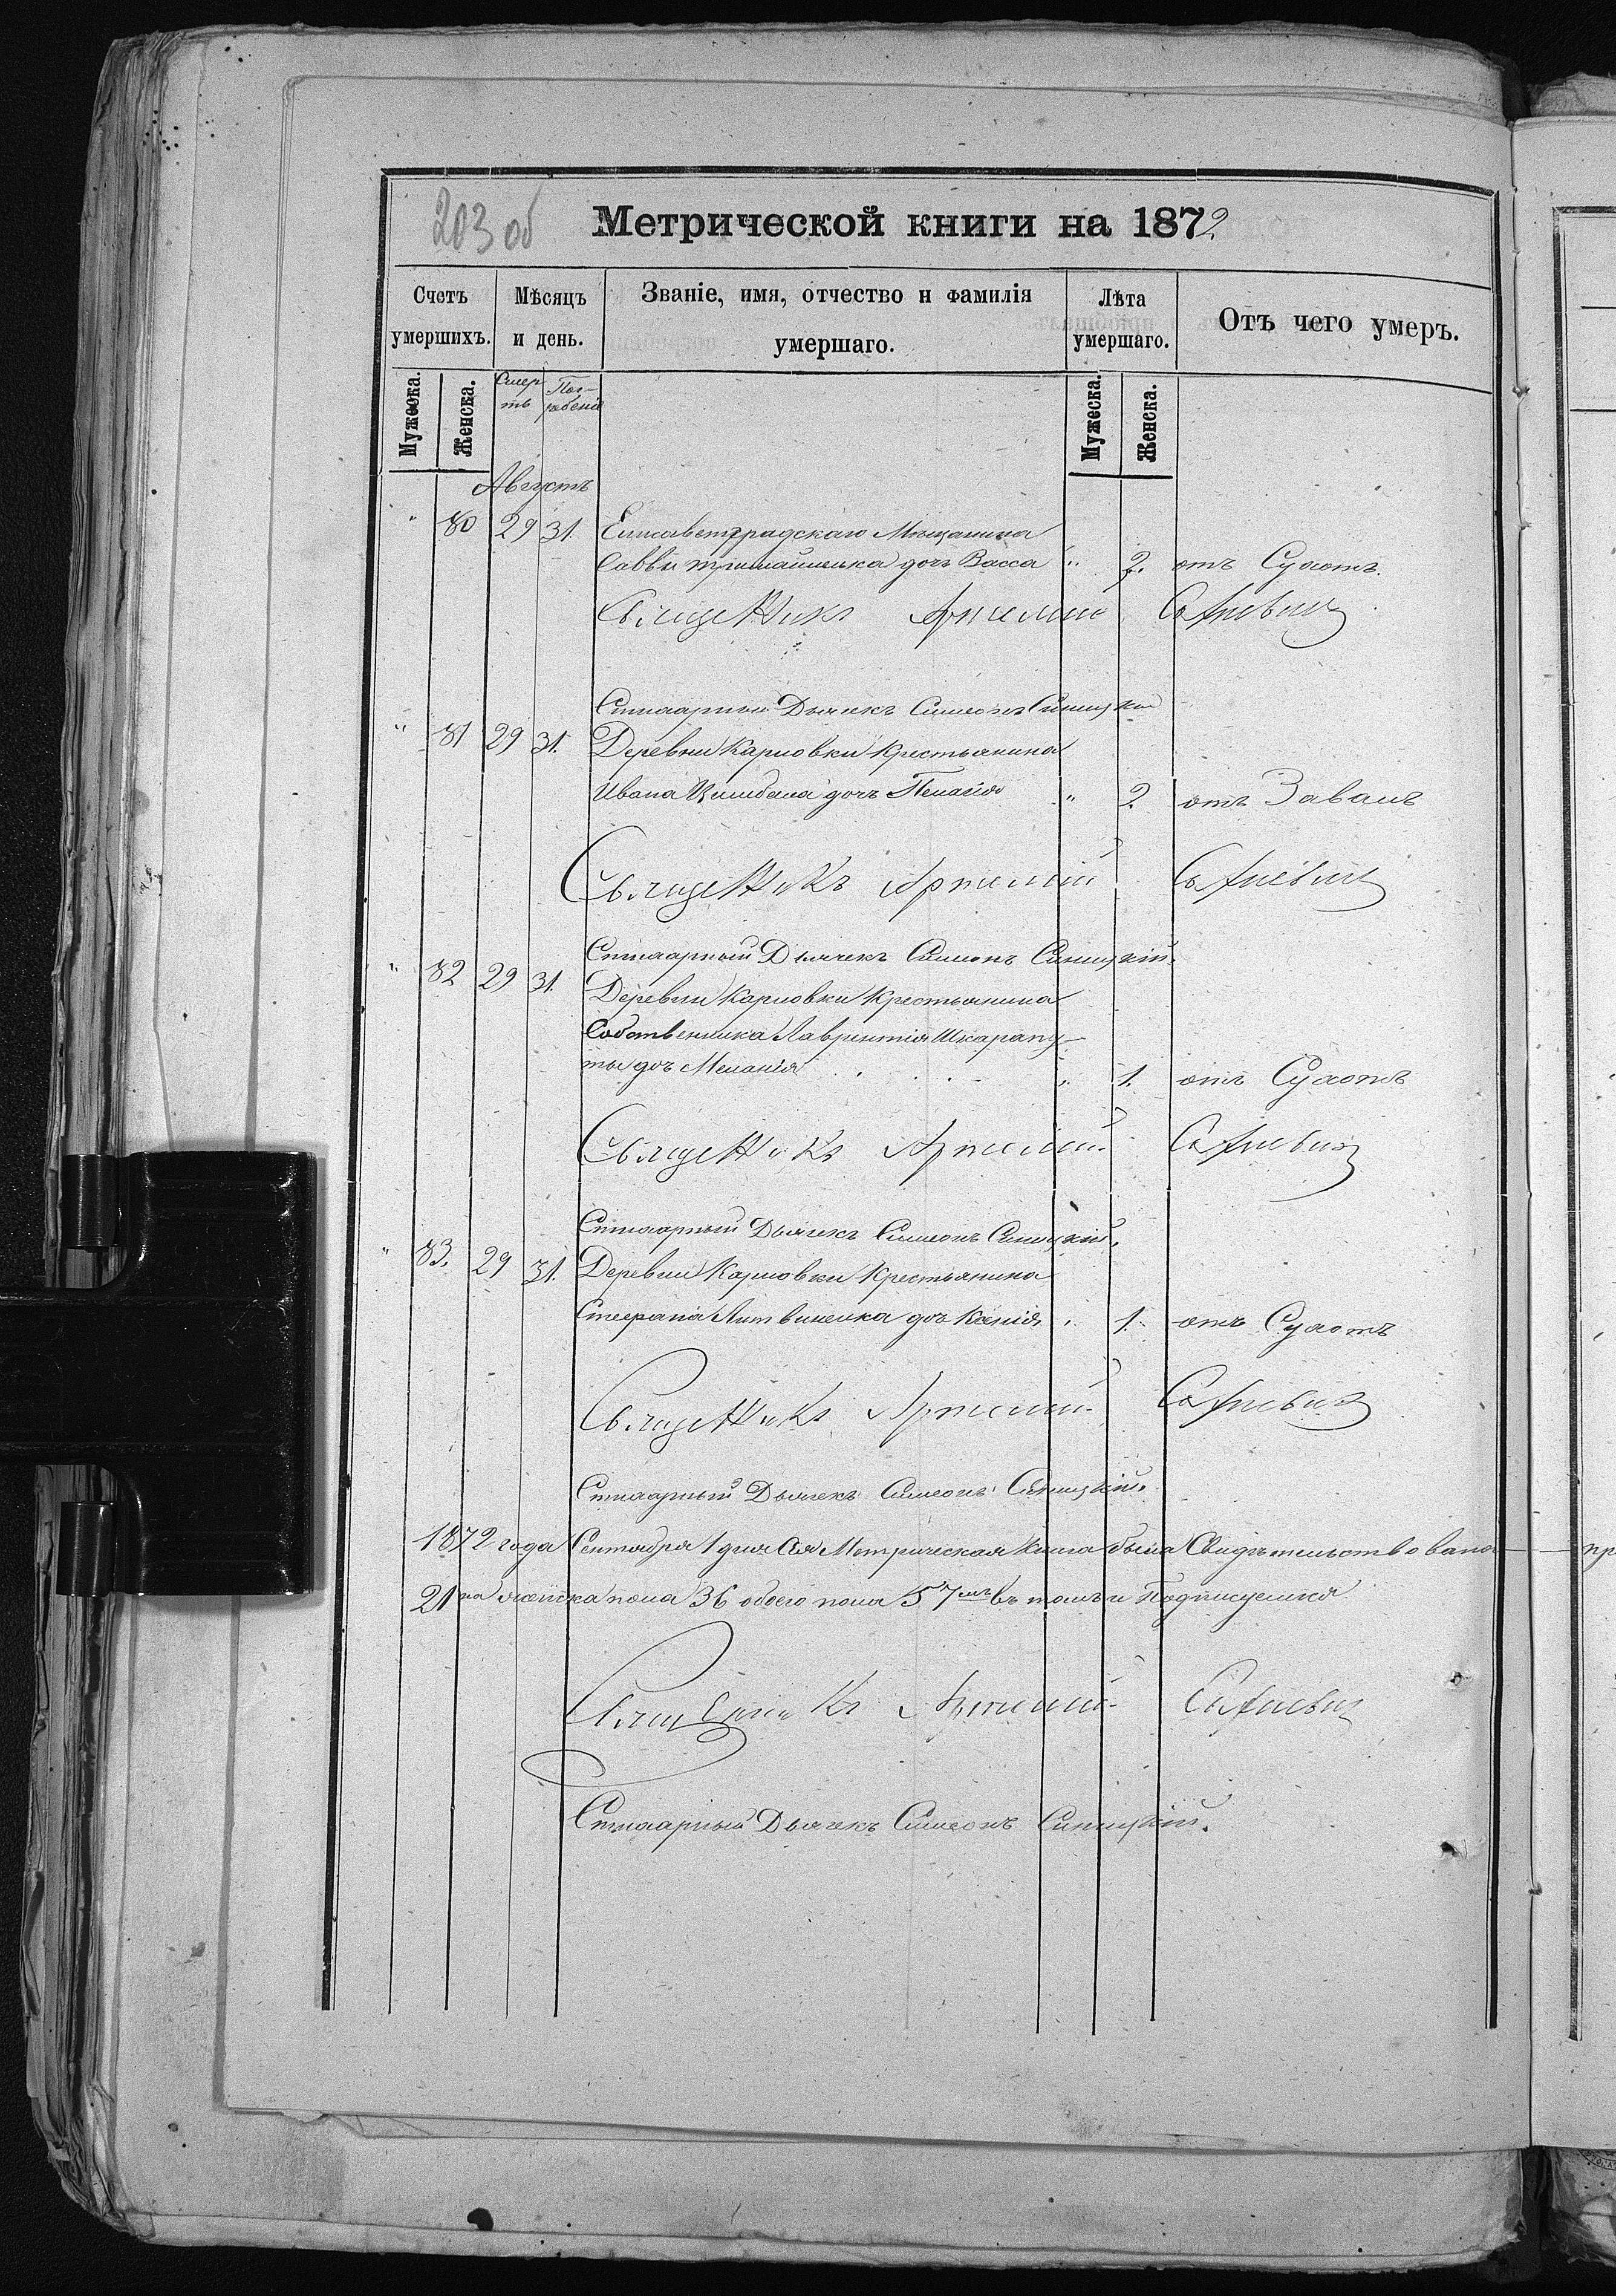 203 об
Метрической книги на 1872
Счетъ умершихъ. Мѣсяцъ и день. Званіе, имя, отчество и фамилія умершаго. Лѣта умершаго. Отъ чего умеръ.
Мужеска. Женска. Смерть Погребенія Мужеска. Женска.
Августъ
" 80 29 31. Елисаветградскаго Мѣщанина
Саввы дочь Васса " 2. отъ Сухотъ.
Священникъ Артемій
Стихарный Дьячекъ Симеонъ Синицкій
" 81 29 31. Деревни Карловки Крестьянина
Ивана Цимбала дочь Пелагія " 2 отъ Завалъ
Священникъ Артемій
Стихарный Дьячекъ Симеонъ Синицкій.
" 82 29 31. Деревни Карловки Крестьянина
Собственника Лаврентія Шкарапу-
ты дочь Меланія " 1. отъ Сухотъ
Священникъ Артемій
Стихарный Дьячекъ Симеонъ Синицкій.
" 83. 29 31. Деревни Карловки Крестьянина
Стефана Литвиненка дочь Ксенія " 1. отъ Сухотъ
Священникъ Артемій
Стихарный Дьячекъ Симеонъ Синицкій.
1872 года Сентября 1 дня Сія Метрическая Книга была Свидѣтельствована — пр
21 на женска пола 36 обоего пола 57 въ томъ и Подписуемся
Священникъ Артемій
Стихарный Дьячекъ Симеонъ Синицкій.